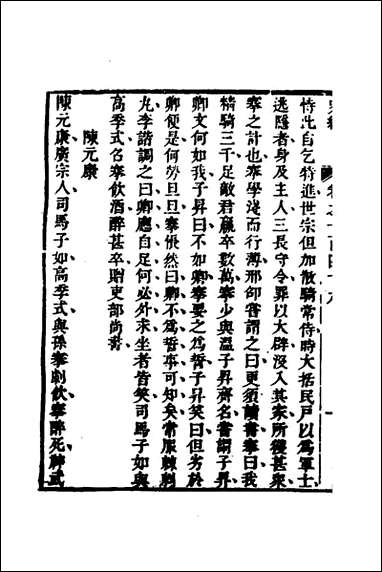 恃此自乞特進世宗但加散騎常侍時大括民戶以為軍士
逃隱者身及主人三長守令罪以大辟沒入其家所獲甚衆
搴之計也搴學淺而行薄邢卲嘗謂之曰更須讀書搴曰我
精騎三千足敵君羸卒數萬搴少與溫子昇齊名嘗謂子昇
卿文何如我子昇曰不如卿搴要之為誓子昇笑曰但劣於
卿便是何勞旦旦搴悵然曰卿不為誓事可知矣常服棘刺
丸李諧調之曰卿應自足何必外求坐者皆笑司馬子如與
高季式召搴飲酒醉甚卒贈吏部尚書
陳元康
陳元康廣宗人司馬子如高季式與孫搴劇飲搴醉死神武